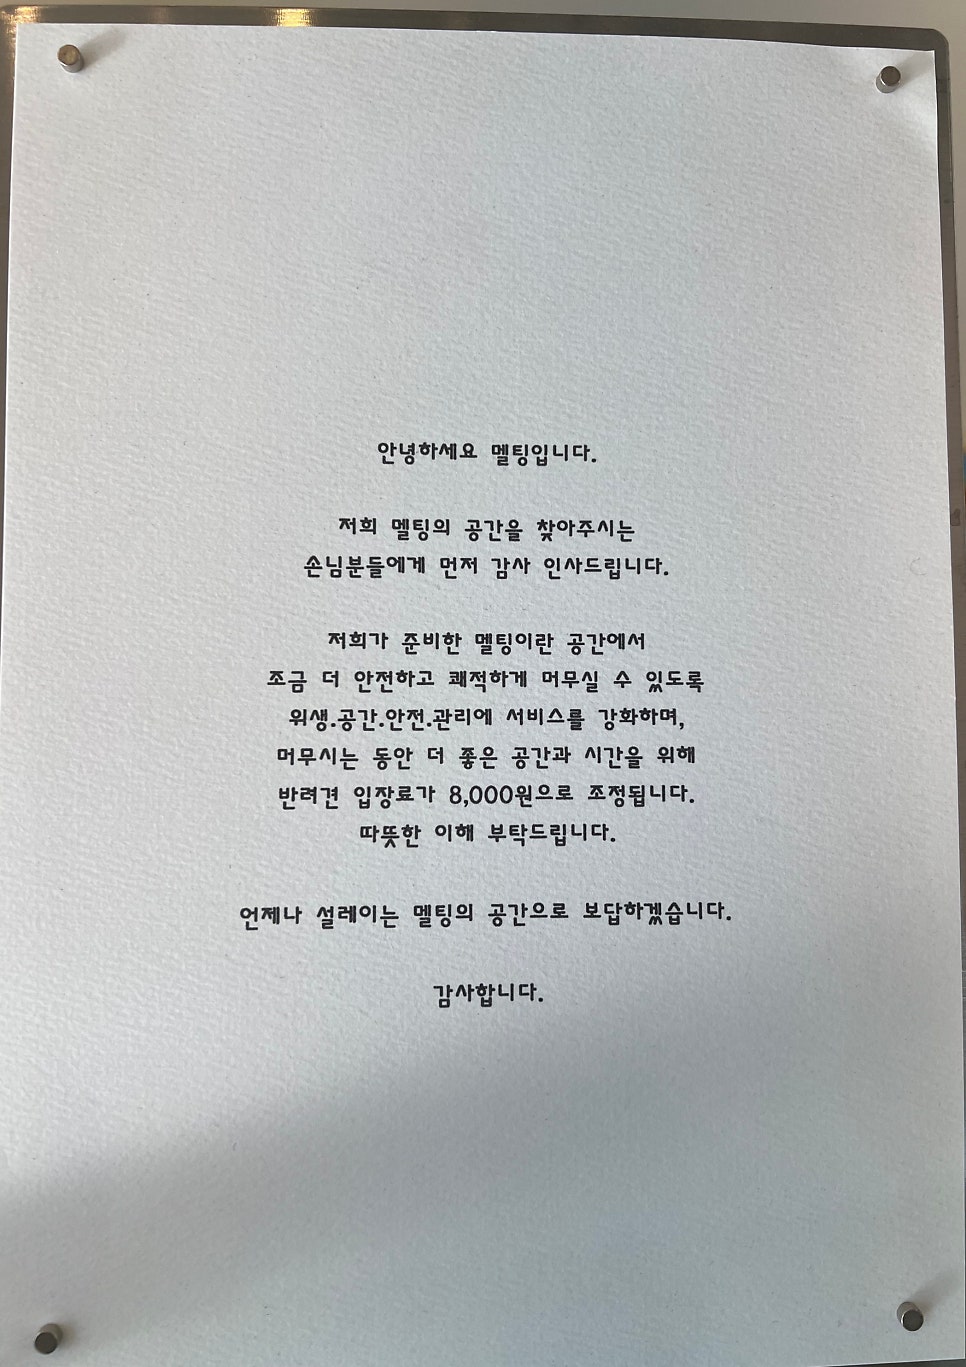 안녕하세요 멜팅입니다.
저희 멜팅의 공간을 찾아주시는
손님분들에게 먼저 감사 인사드립니다.
저희가 준비한 멜팅이란 공간에서
조금 더 안전하고 쾌적하게 머무실 수 있도록
위생.공간.안전.관리에 서비스를 강화하며,
머무시는 동안 더 좋은 공간과 시간을 위해
반려견 입장료가 8,000원으로 조정됩니다.
따뜻한 이해 부탁드립니다.
언제나 설레이는 멜팅의 공간으로 보답하겠습니다.
감사합니다.